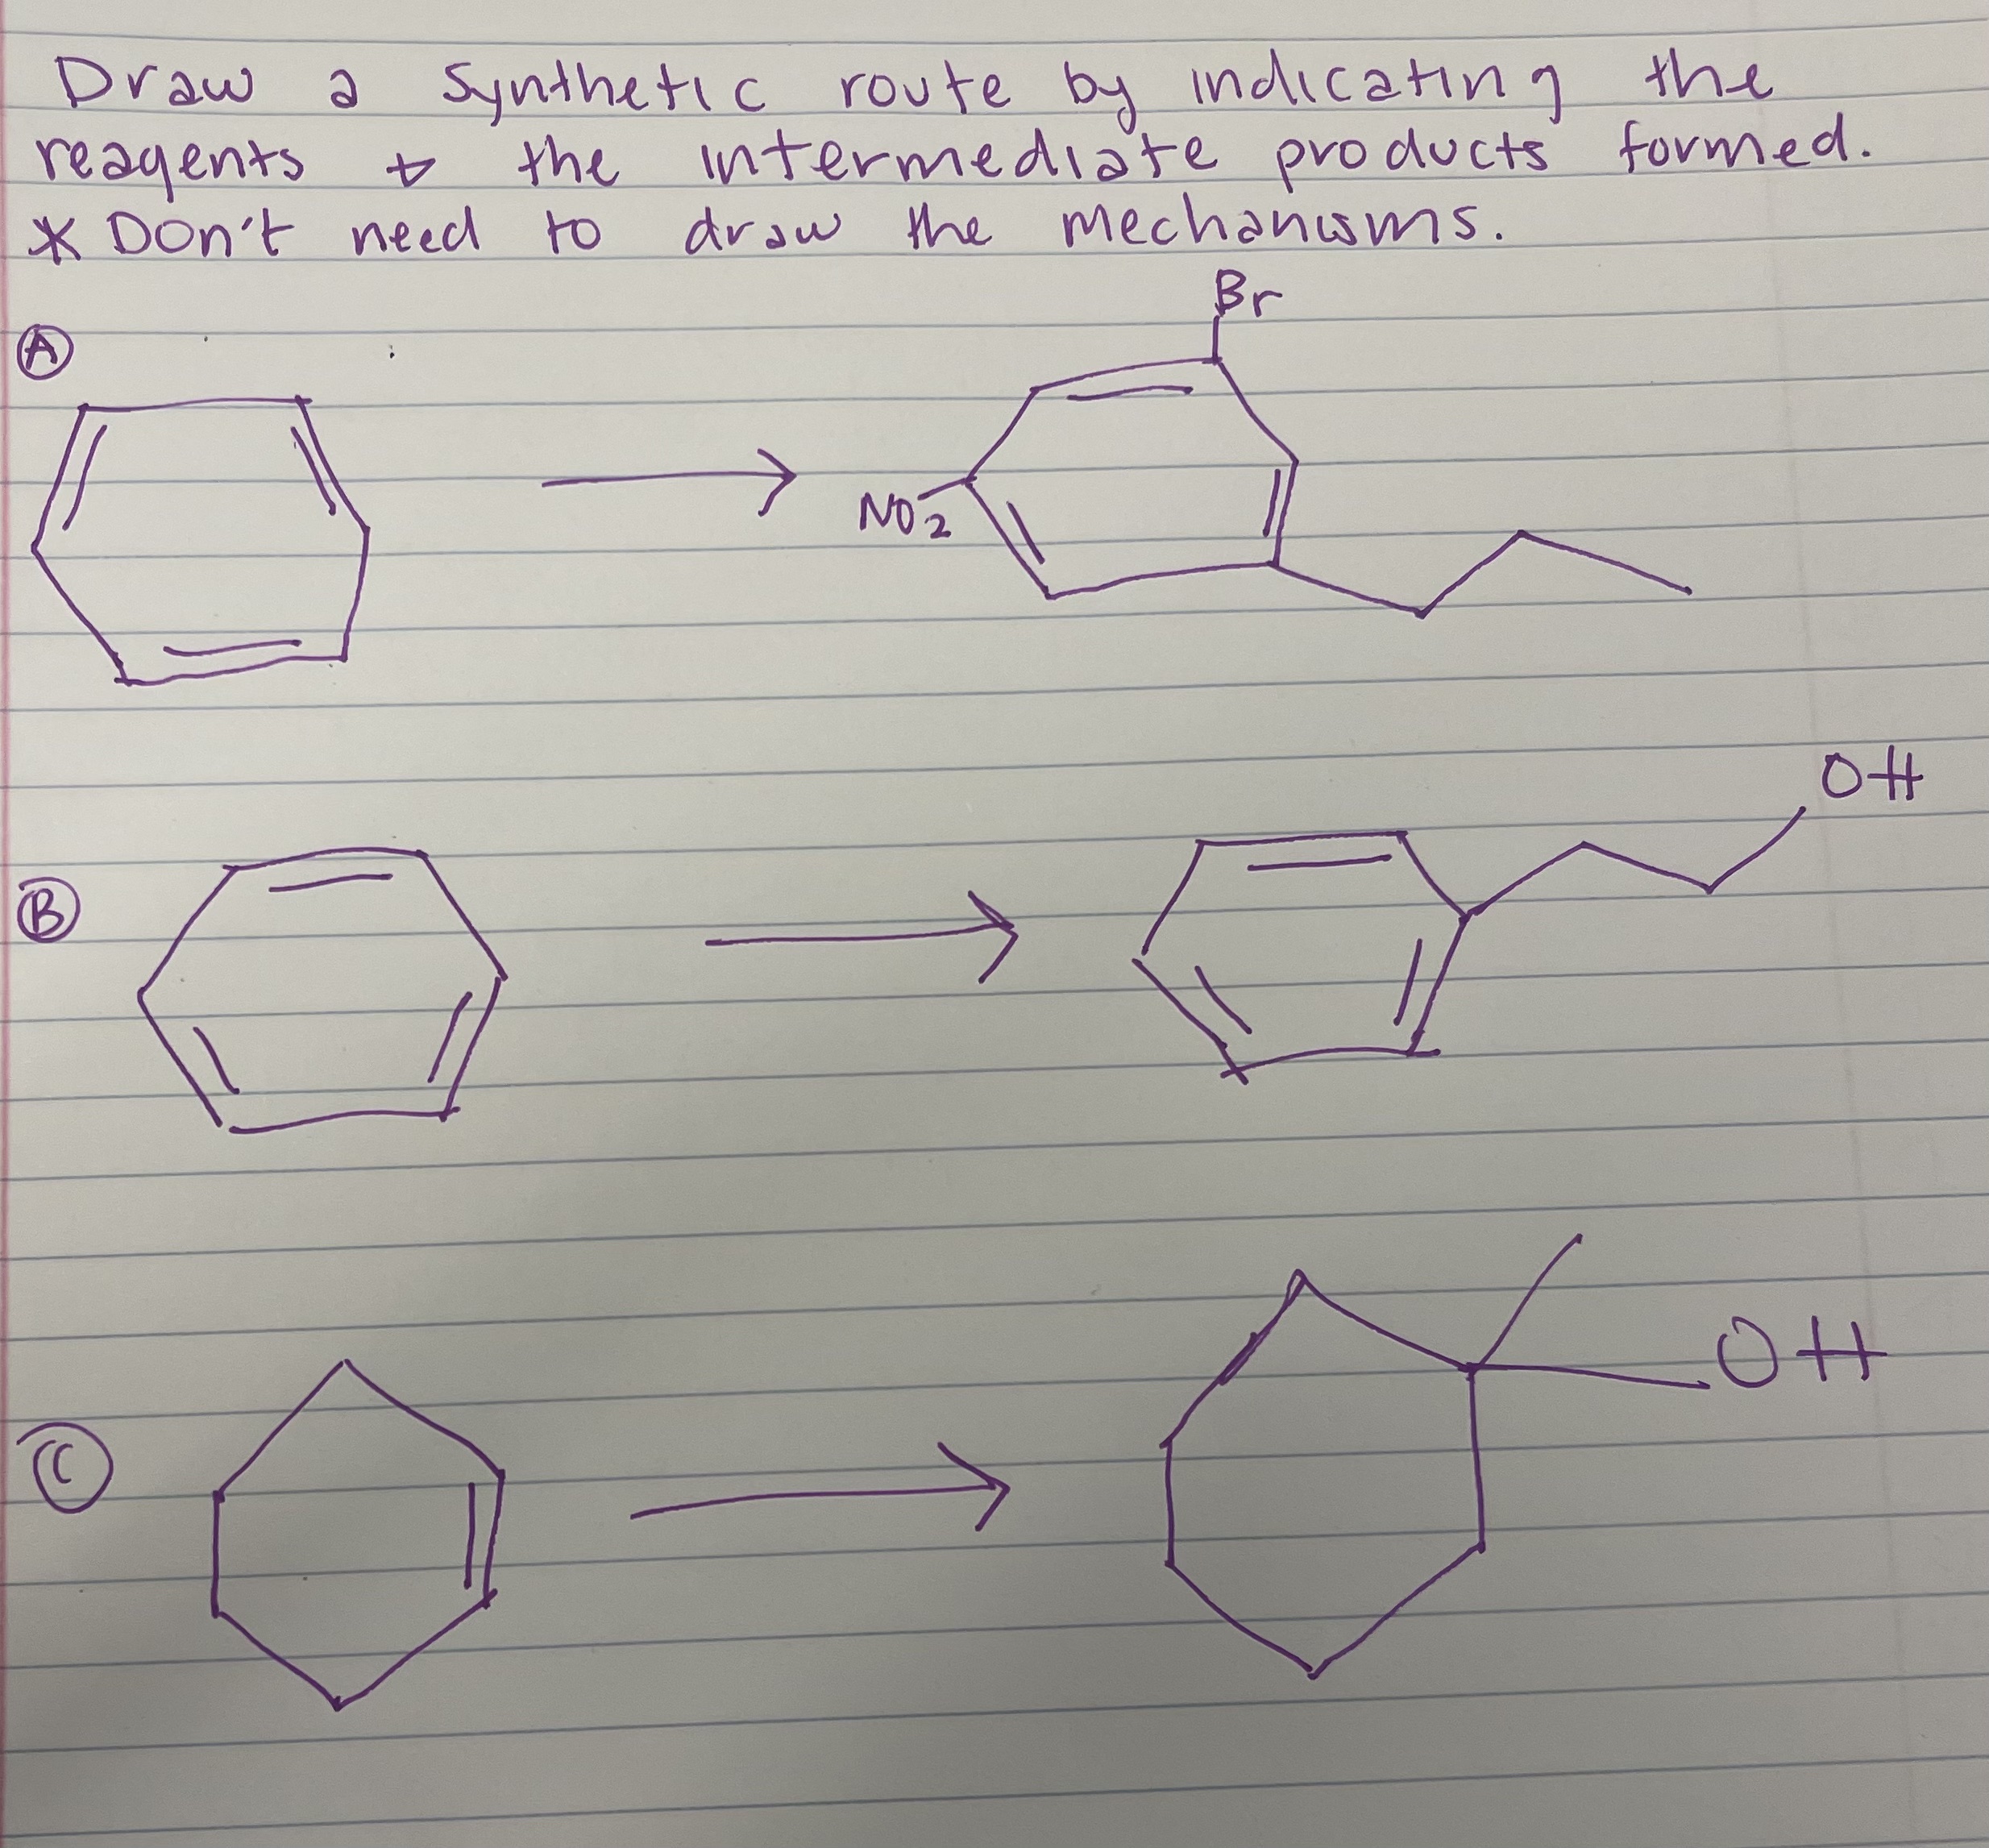 Draw a synthetic route by indicating the
reagents & the intermediate products formed.
* Don't need to draw the mechanisms.
Br
A
NO2
OH
B
OH
C